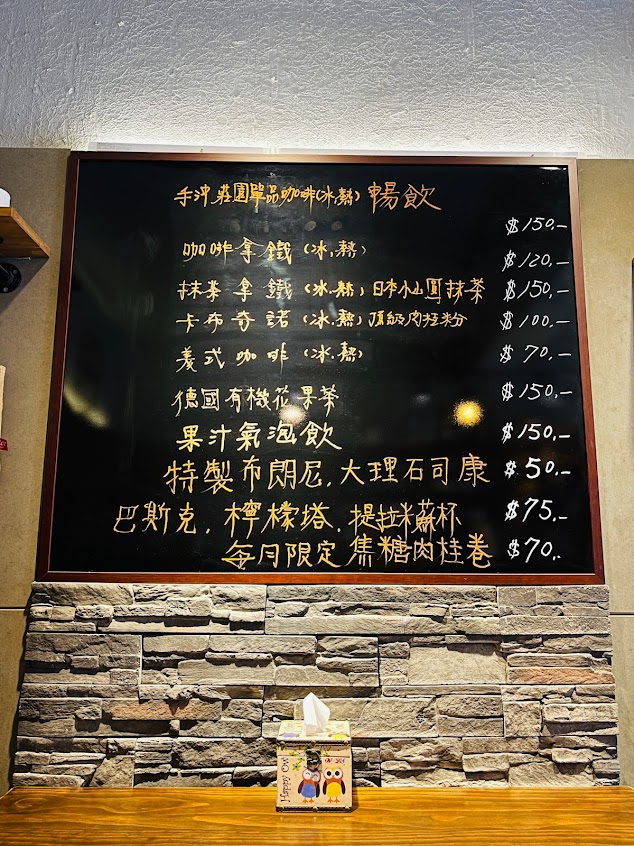 手沖莊園單品咖啡(冰.熱) 暢飲 $150.-
咖啡拿鐵 (冰.熱) $120.-
抹茶拿鐵 (冰.熱) 日本小山圓抹茶 $150.-
卡布奇諾 (冰.熱) 頂級肉桂粉 $100.-
義式咖啡 (冰.熱) $70.-
德國有機花果茶 $150.-
果汁氣泡飲 $150.-
特製布朗尼.大理石司康 $50.-
巴斯克.檸檬塔.提拉米蘇杯 $75.-
每月限定 焦糖肉桂卷 $70.-
Happy Owl